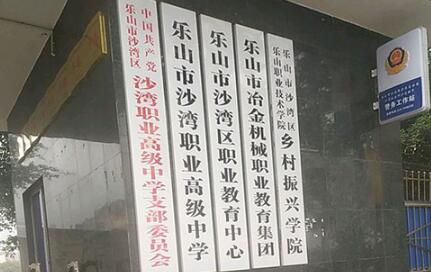 中国共产党
乐山市沙湾区
沙湾职业高级中学支部委员会
乐山市沙湾职业高级中学
乐山市沙湾区职业教育中心
乐山市冶金机械职业教育集团
乐山市沙湾区
乐山职业技术学院
乡村振兴学院
警务工作站